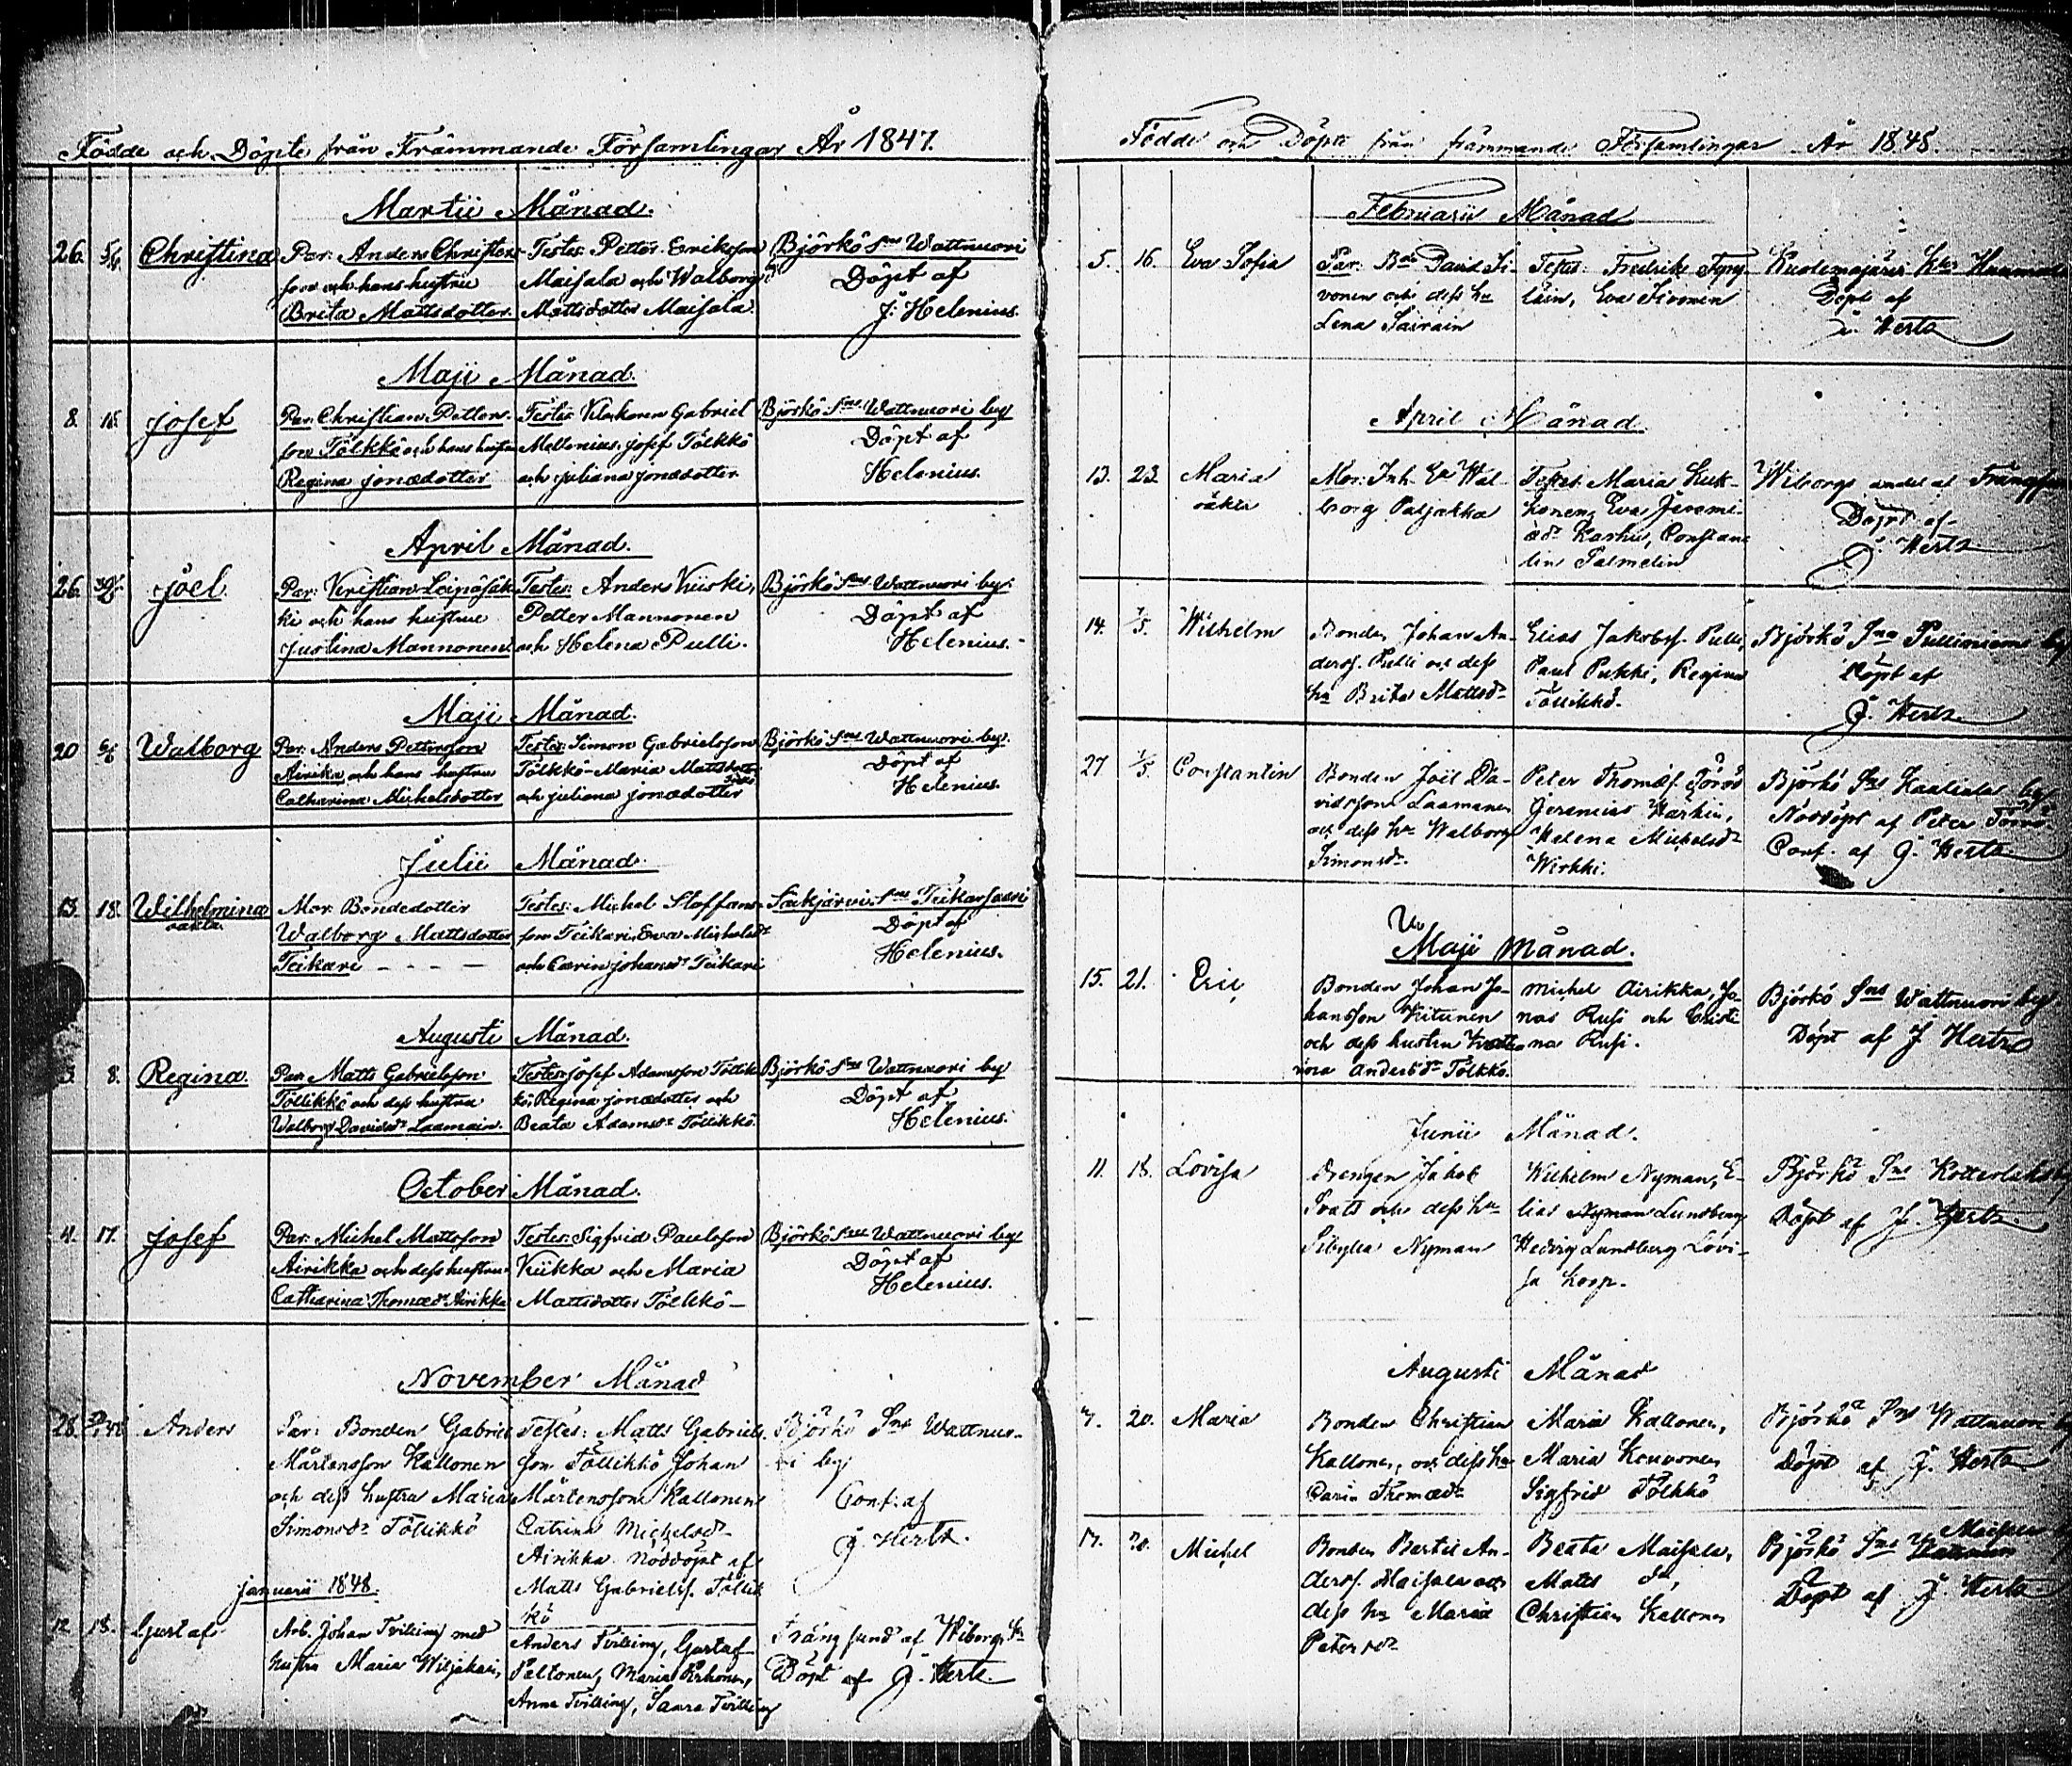 Födde och Döpte från Främmande Församlingar År 1847.
Martii Månad.
26. 5/4. Christina
Par: Anders Christers-
son och hans hustru
Brita Mattsdotter.
Testes: Petter Eriksson
Maisala och Walborg
Mattsdotter Maisala.
Björkö Sns Wattnuori
Döpt af
J. Helenius.
Maji Månad.
8. 16. Josef
Par: Christian Petters-
son Tölkkö och hans hustru
Regina Jonædotter
Testes: Klockaren Gabriel
Mellenius, Josef Tölkkö
och Juliana Jonædotter
Björkö Sns Wattnuori by
Döpt af
Helenius.
April Månad.
26. Joel
Par: Kristian Leipäjäk-
ki och hans hustru
Justina Mannonen
Testes: Anders Kiiski,
Petter Mannonen
och Helena Pulli.
Björkö Sns Wattnuori by.
Döpt af
Helenius.
Maji Månad.
20 Walborg
Par: Anders Pettersson
Airikka och hans hustru
Catharina Michelsdotter
Testes: Simon Gabrielsson
Tölkkö Maria Matts
och Juliana Jonædotter
Björkö Sns Wattnuori by.
Döpt af
Helenius.
Julii Månad.
13. 18. Wilhelmina
oäkta
Mor: Bondedotter
Walborg Mattsdotter
Teikari
Testes: Michel Staffans-
son Teikari, Eva Michelsdr
och Carin Johansdr Teikari
Säkjärvi Sns Teikarsaari
Döpt af
Helenius.
Augusti Månad.
8. Regina.
Par: Matts Gabrielsson
Töllikkö och dess hustru
Walborg Davidsdr Laamain.
Testes: Josef Adamsson Töllik-
kö, Regina Jonædotter och
Beata Adamsdr Töllikkö.
Björkö Sns Wattnuori by
Döpt af
Helenius.
October Månad.
4. 17. Josef
Par: Michel Mattsson
Airikka och dess hustru
Catharina Thomædr Airikka
Testes: Sigfrid Paulsson
Kiikka och Maria
Mattsdotter Tölkkö
Björkö Sns Wattnuori by
Döpt af
Helenius.
November Månad
28. Anders
Par: Bonden Gabriel
Mårtensson Kallonen
och dess hustru Maria
Simonsdr Töllikkö
Testes: Matts Gabriels-
son Töllikkö Johan
Mårtensson Kallonen
Catrina Michelsdr
Airikka Nöddöpt af
Matts Gabrielss. Töllik
kö
Björkö Sns Wattnuo-
ri by
Conf. af
J. Hertz.
Januarii 1848.
12. 18. Gustaf
Arb. Johan Tvilling med
hustru Maria Wiljakai,
Anders Tvilling, Gustaf
Paltonen, Maria Pirhonen,
Anna Tvilling, Saara Tvilling
Trångsund af Wiborgs Sn
Döpt af J. Hertz.
Födde och Döpte från främmande Församlingar År 1848.
Februarii Månad
5. 16. Eva Sofia
Par: Bdn David Si-
vonen och dess hu
Lena Sairain
Testes: Fredrika Tyry-
läin, Eva Sivonen
Kuolemajärvi
Döpt af
J. Hertz
April Månad.
13. 23. Maria
oäkta
Mor: Inh. Wal-
borg Parjakka
Testes: Maria Kuk-
konen, Eva Jeremi-
ædr Karhu, Constan
tin Palmelin
Wiborgs
Döpt af
J. Hertz
14. 7/5. Wilhelm
Bonden Johan An-
derss. Pulli och dess
hu Brita Mattsdr
Elias Jakobss. Pulli,
Paul Pukki, Regina
Töllikkö.
Björkö Sns Pulliniemi by
Döpt af
J. Hertz
27 7/5. Constantin
Bonden Joel Da-
vidsson Laamanen
och dess hu Walborg
Simonsdr.
Peter Thomæs.
Jeremias
Helena Michelsdr
Wirkki.
Björkö Sns
Nöddöpt af Peter
Conf. af J. Hertz
Maji Månad.
15. 21. Eric
Bonden Johan Jo-
hansson Kitunen
och dess hustru
Andersdr Tölkkö.
Michel Airikka, Jo-
nas Rusi och Christi
na Rusi.
Björkö Sns Wattnuori by
Döpt af J. Hertz
Junii Månad.
11. 18. Lovisa
Drengen Jakob
och dess hu
Sibylla Nyman
Wilhelm Nyman, E-
lias Nyman Lundberg
Hedvig Lundberg Lovi-
sa
Björkö Sns
Döpt af J. Hertz
Augusti Månad
7. 20. Maria
Bonden Christian
Kallonen, och dess hu
Carin Thomædr
Maria Kallonen,
Maria Kouvonen
Sigfrid Tölkkö
Björkö Sns Wattnuori
Döpt af J. Hertz
17. 20. Michel
Bonden Bertil An-
derss. Maisala och
dess hu Maria
Petersdr
Beata Maisala,
Matts do,
Christian Kallonen
Björkö Sns
Döpt af J. Hertz